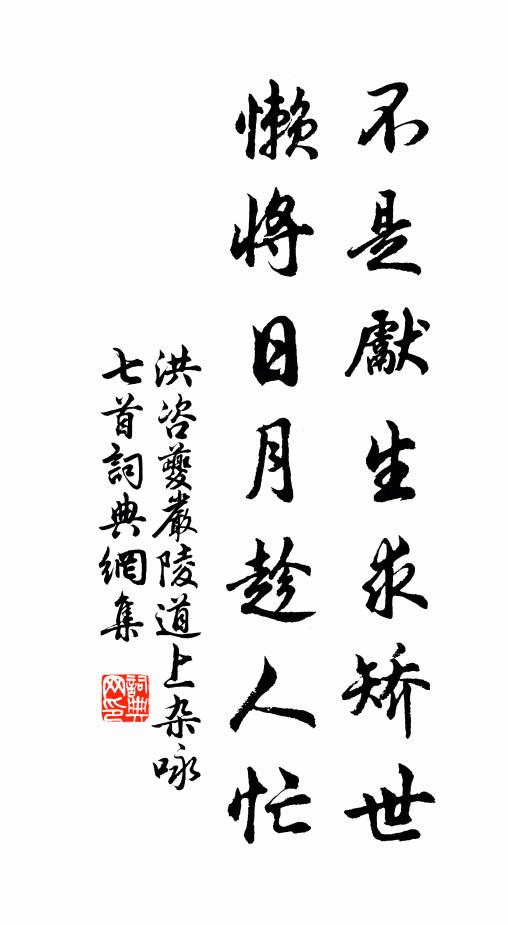 不是獻生求矯世
懶將日月趁人忙
洪咨夔嚴陵道上杂咏
七首詞典網集
詞典网印